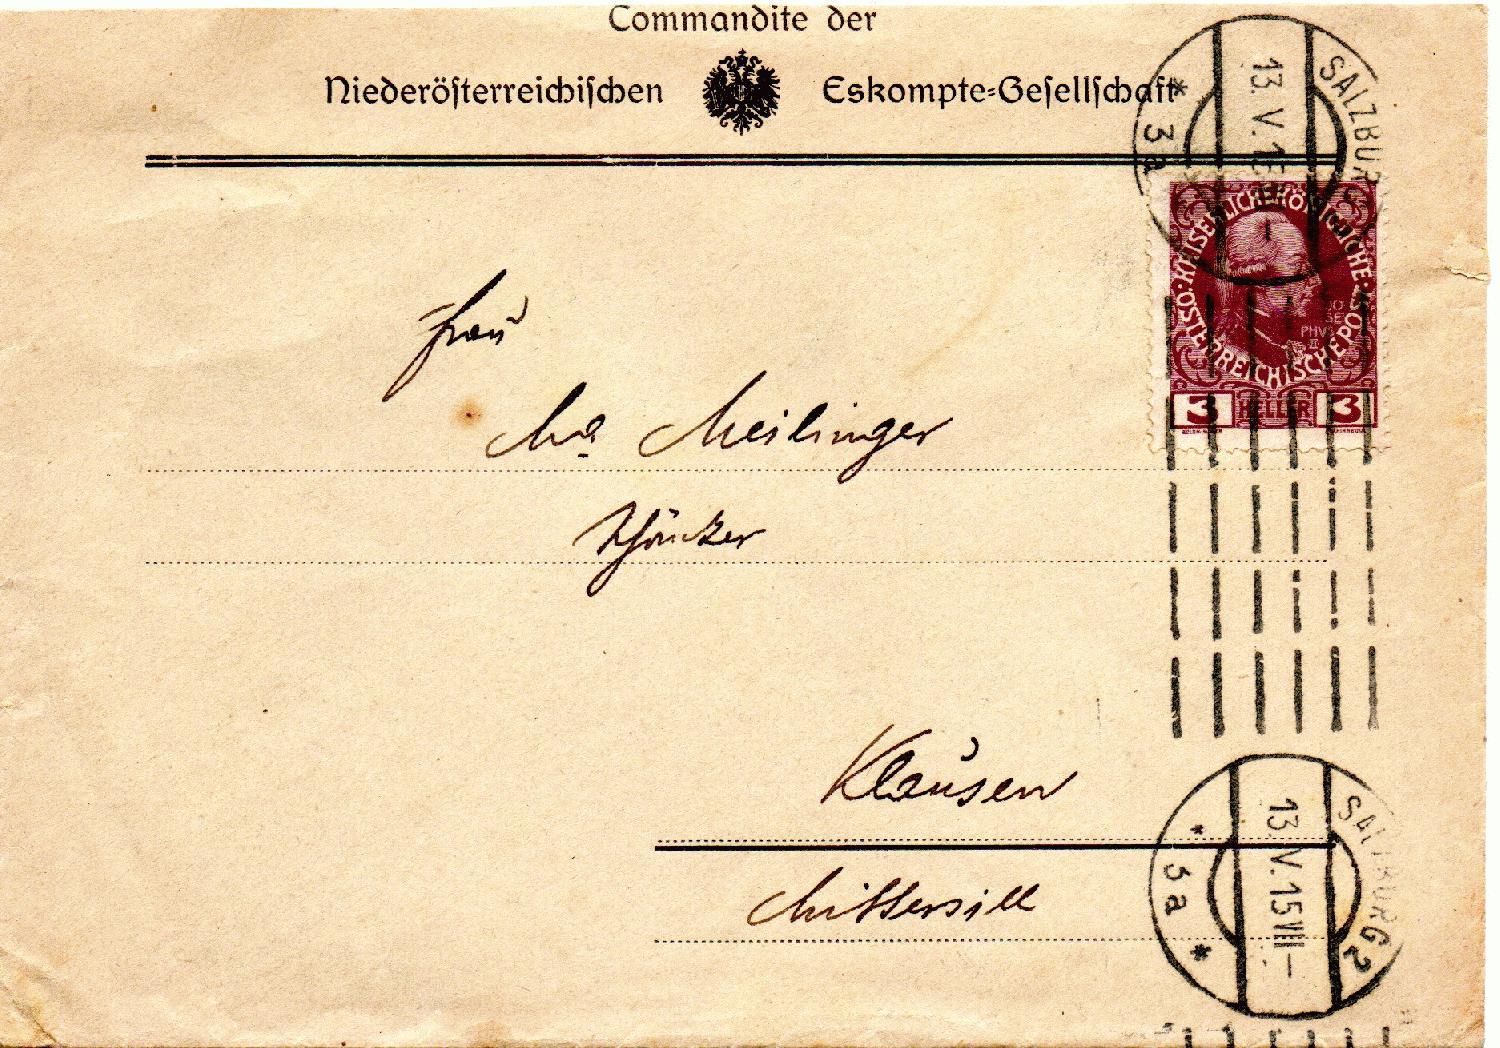 Commandite der
Niederösterreichischen Eskompte-Gesellschaft
SALZBURG
* 3a
13. V. 15
KAISERLICHE KÖNIGLICHE
ÖSTERREICHISCHE POST
3 HELLER 3
Frau
Meilinger
Klausen
Mittersill
SALZBURG 2
* 3a *
13. V. 15 VIII –